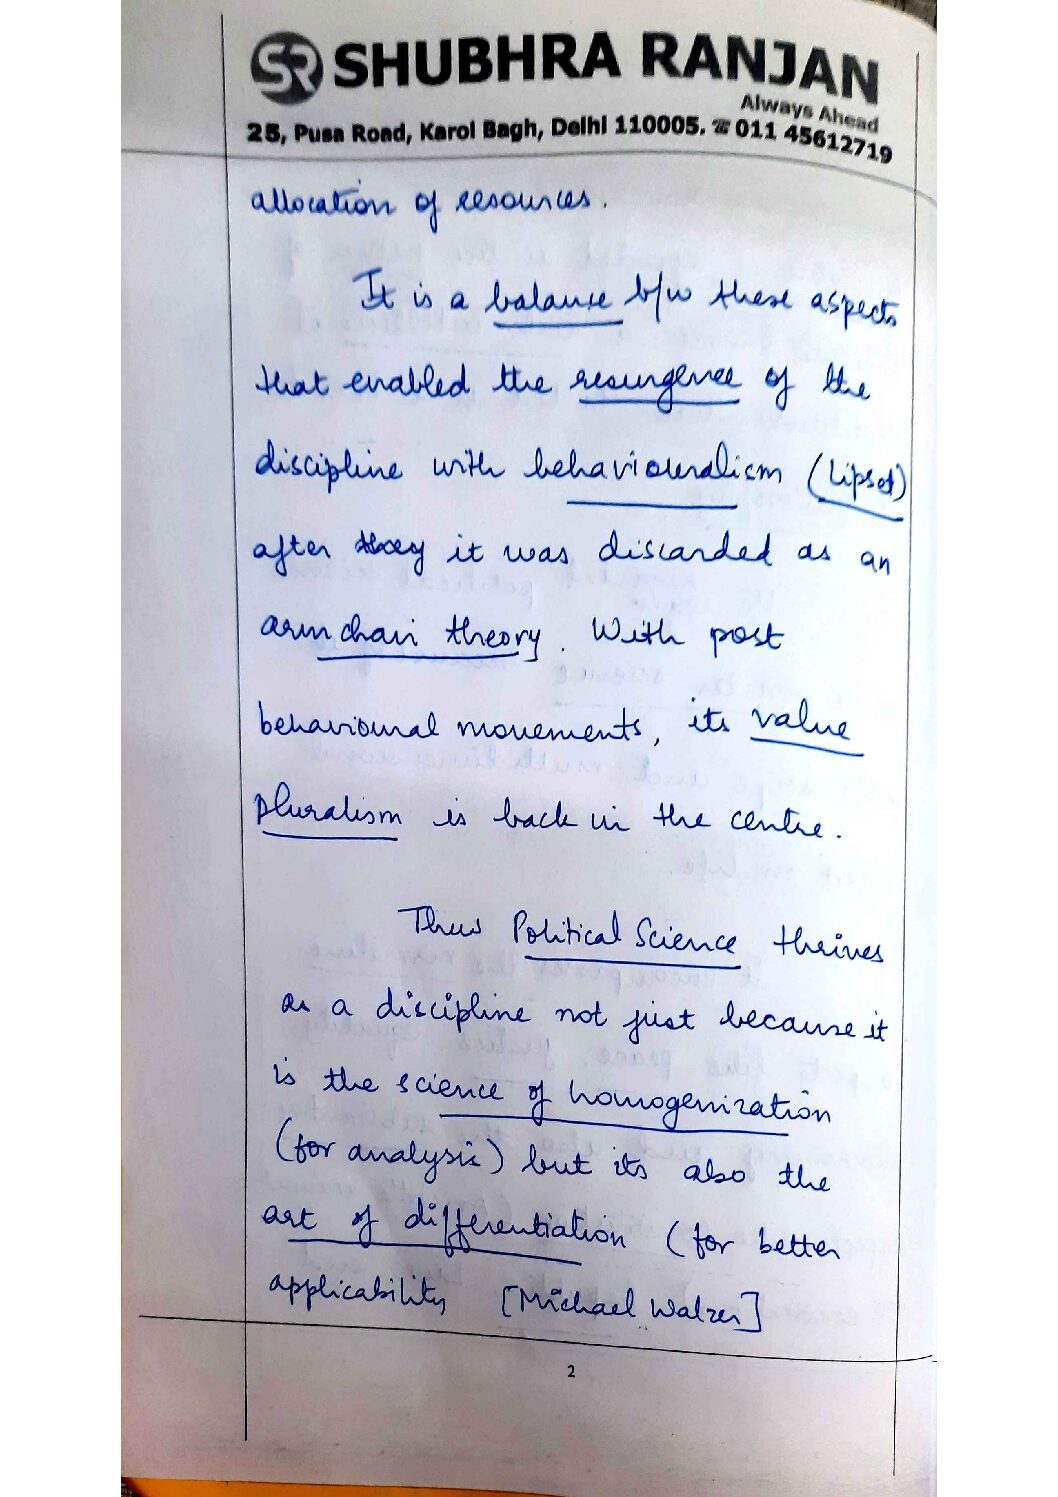 SR SHUBHRA RANJAN
Always Ahead
25, Pusa Road, Karol Bagh, Delhi 110005. ☎ 011 45612719
allocation of resources.
It is a balance b/w these aspects
that enabled the resurgence of the
discipline with behaviouralism (Lipset)
after it was discarded as an
armchair theory. With post
behavioural movements, its value
pluralism is back in the centre.
Thus Political Science thrives
as a discipline not just because it
is the science of homogenization
(for analysis) but its also the
art of differentiation (for better
applicability [Michael Walzer]
2